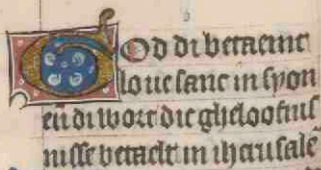 God di betaemt
louesanc in syon
eñ di wort die gheloofnis
nisse betaelt in iherusalē